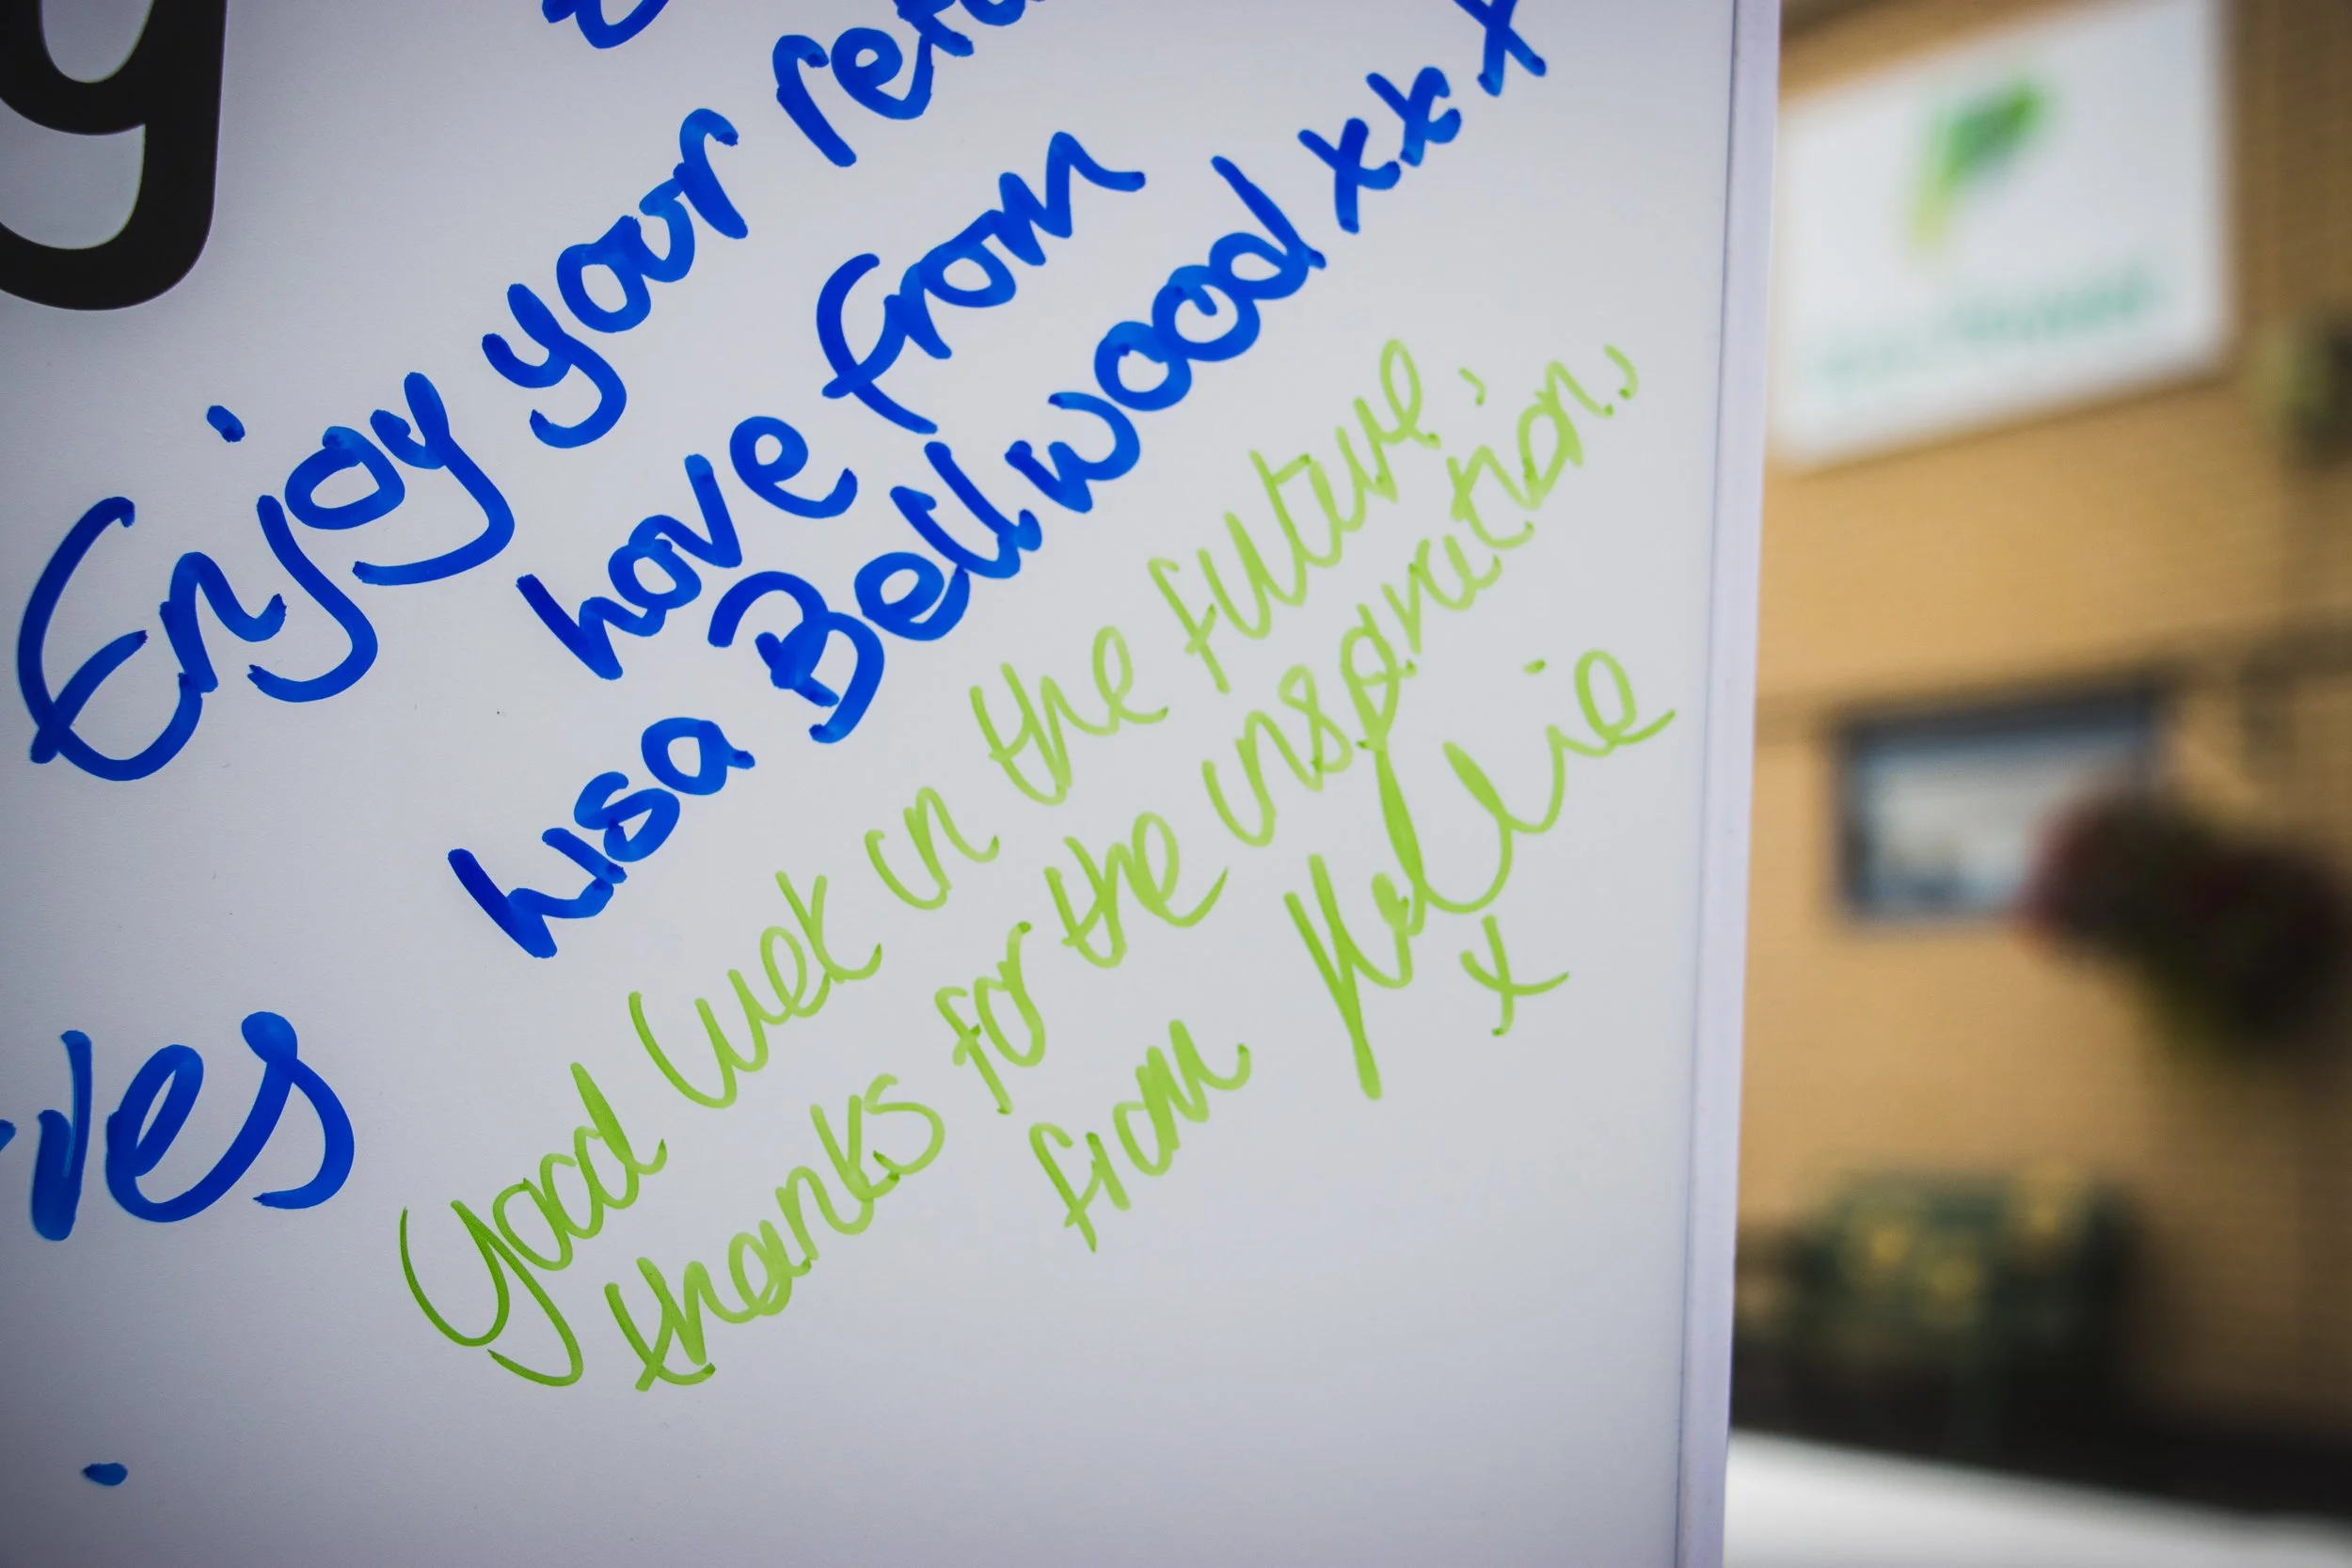 g
Enjoy your
Love from
Lisa Bellwood xxx
ves
Good luck in the future,
thanks for the inspiration.
from
x